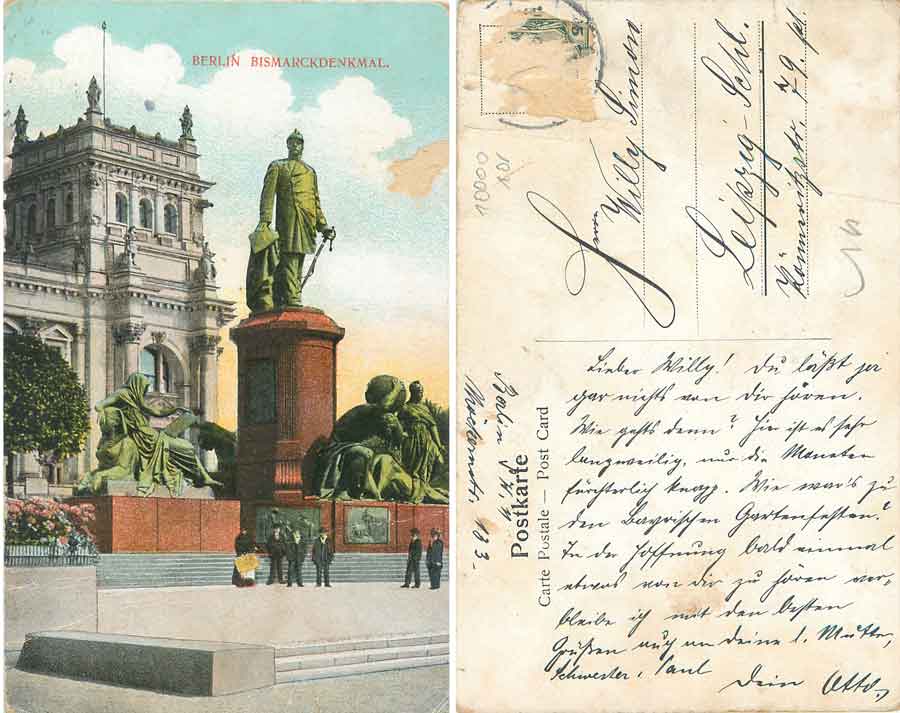 BERLIN BISMARCKDENKMAL.
5
Herrn
Willy Simon
Leipzig-Schl.
Könneritzstr. 79 pt.
10000
104
Postkarte
Carte Postale — Post Card
Berlin
103
Lieber Willy! Du läßt ja
gar nichts von dir hören.
Wie gehts denn? Hier ist es sehr
langweilig, nur die Moneten
fürchterlich knapp. Wie war's zu
den Bayrischen Gartenfesten?
In der Hoffnung bald einmal
etwas von dir zu hören ver-
bleibe ich mit den besten
Grüßen auch an deine l. Mutter,
Schwester, Paul
Dein Otto.